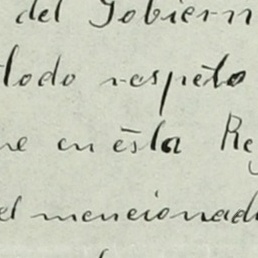 del Gobiern
todo respèto
ne en èsta Re
el mencionad